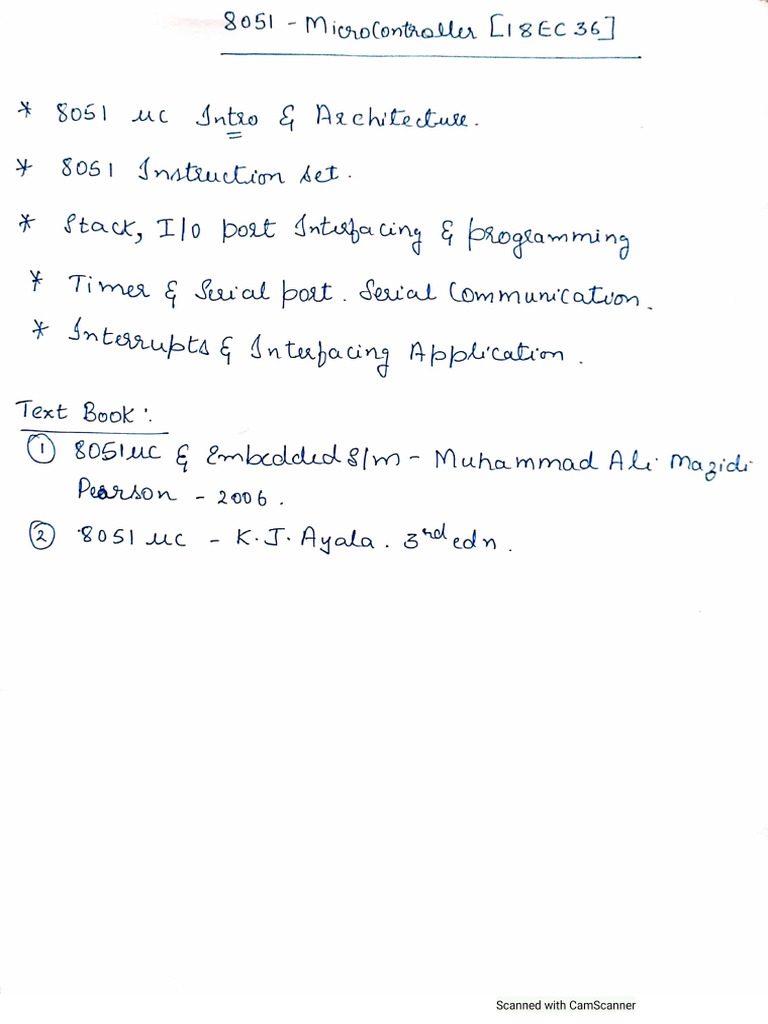 8051 - Microcontroller [18EC36]
* 8051 uc Intro & Architecture.
* 8051 Instruction set.
* Stack, I/O port Interfacing & programming
* Timer & Serial port. Serial Communication.
* Interrupts & Interfacing Application.
Text Book:
① 8051uc & Embedded S/m - Muhammad Ali Mazidi
Pearson - 2006.
② 8051 uc - K.J. Ayala. 3rd edn.
Scanned with CamScanner